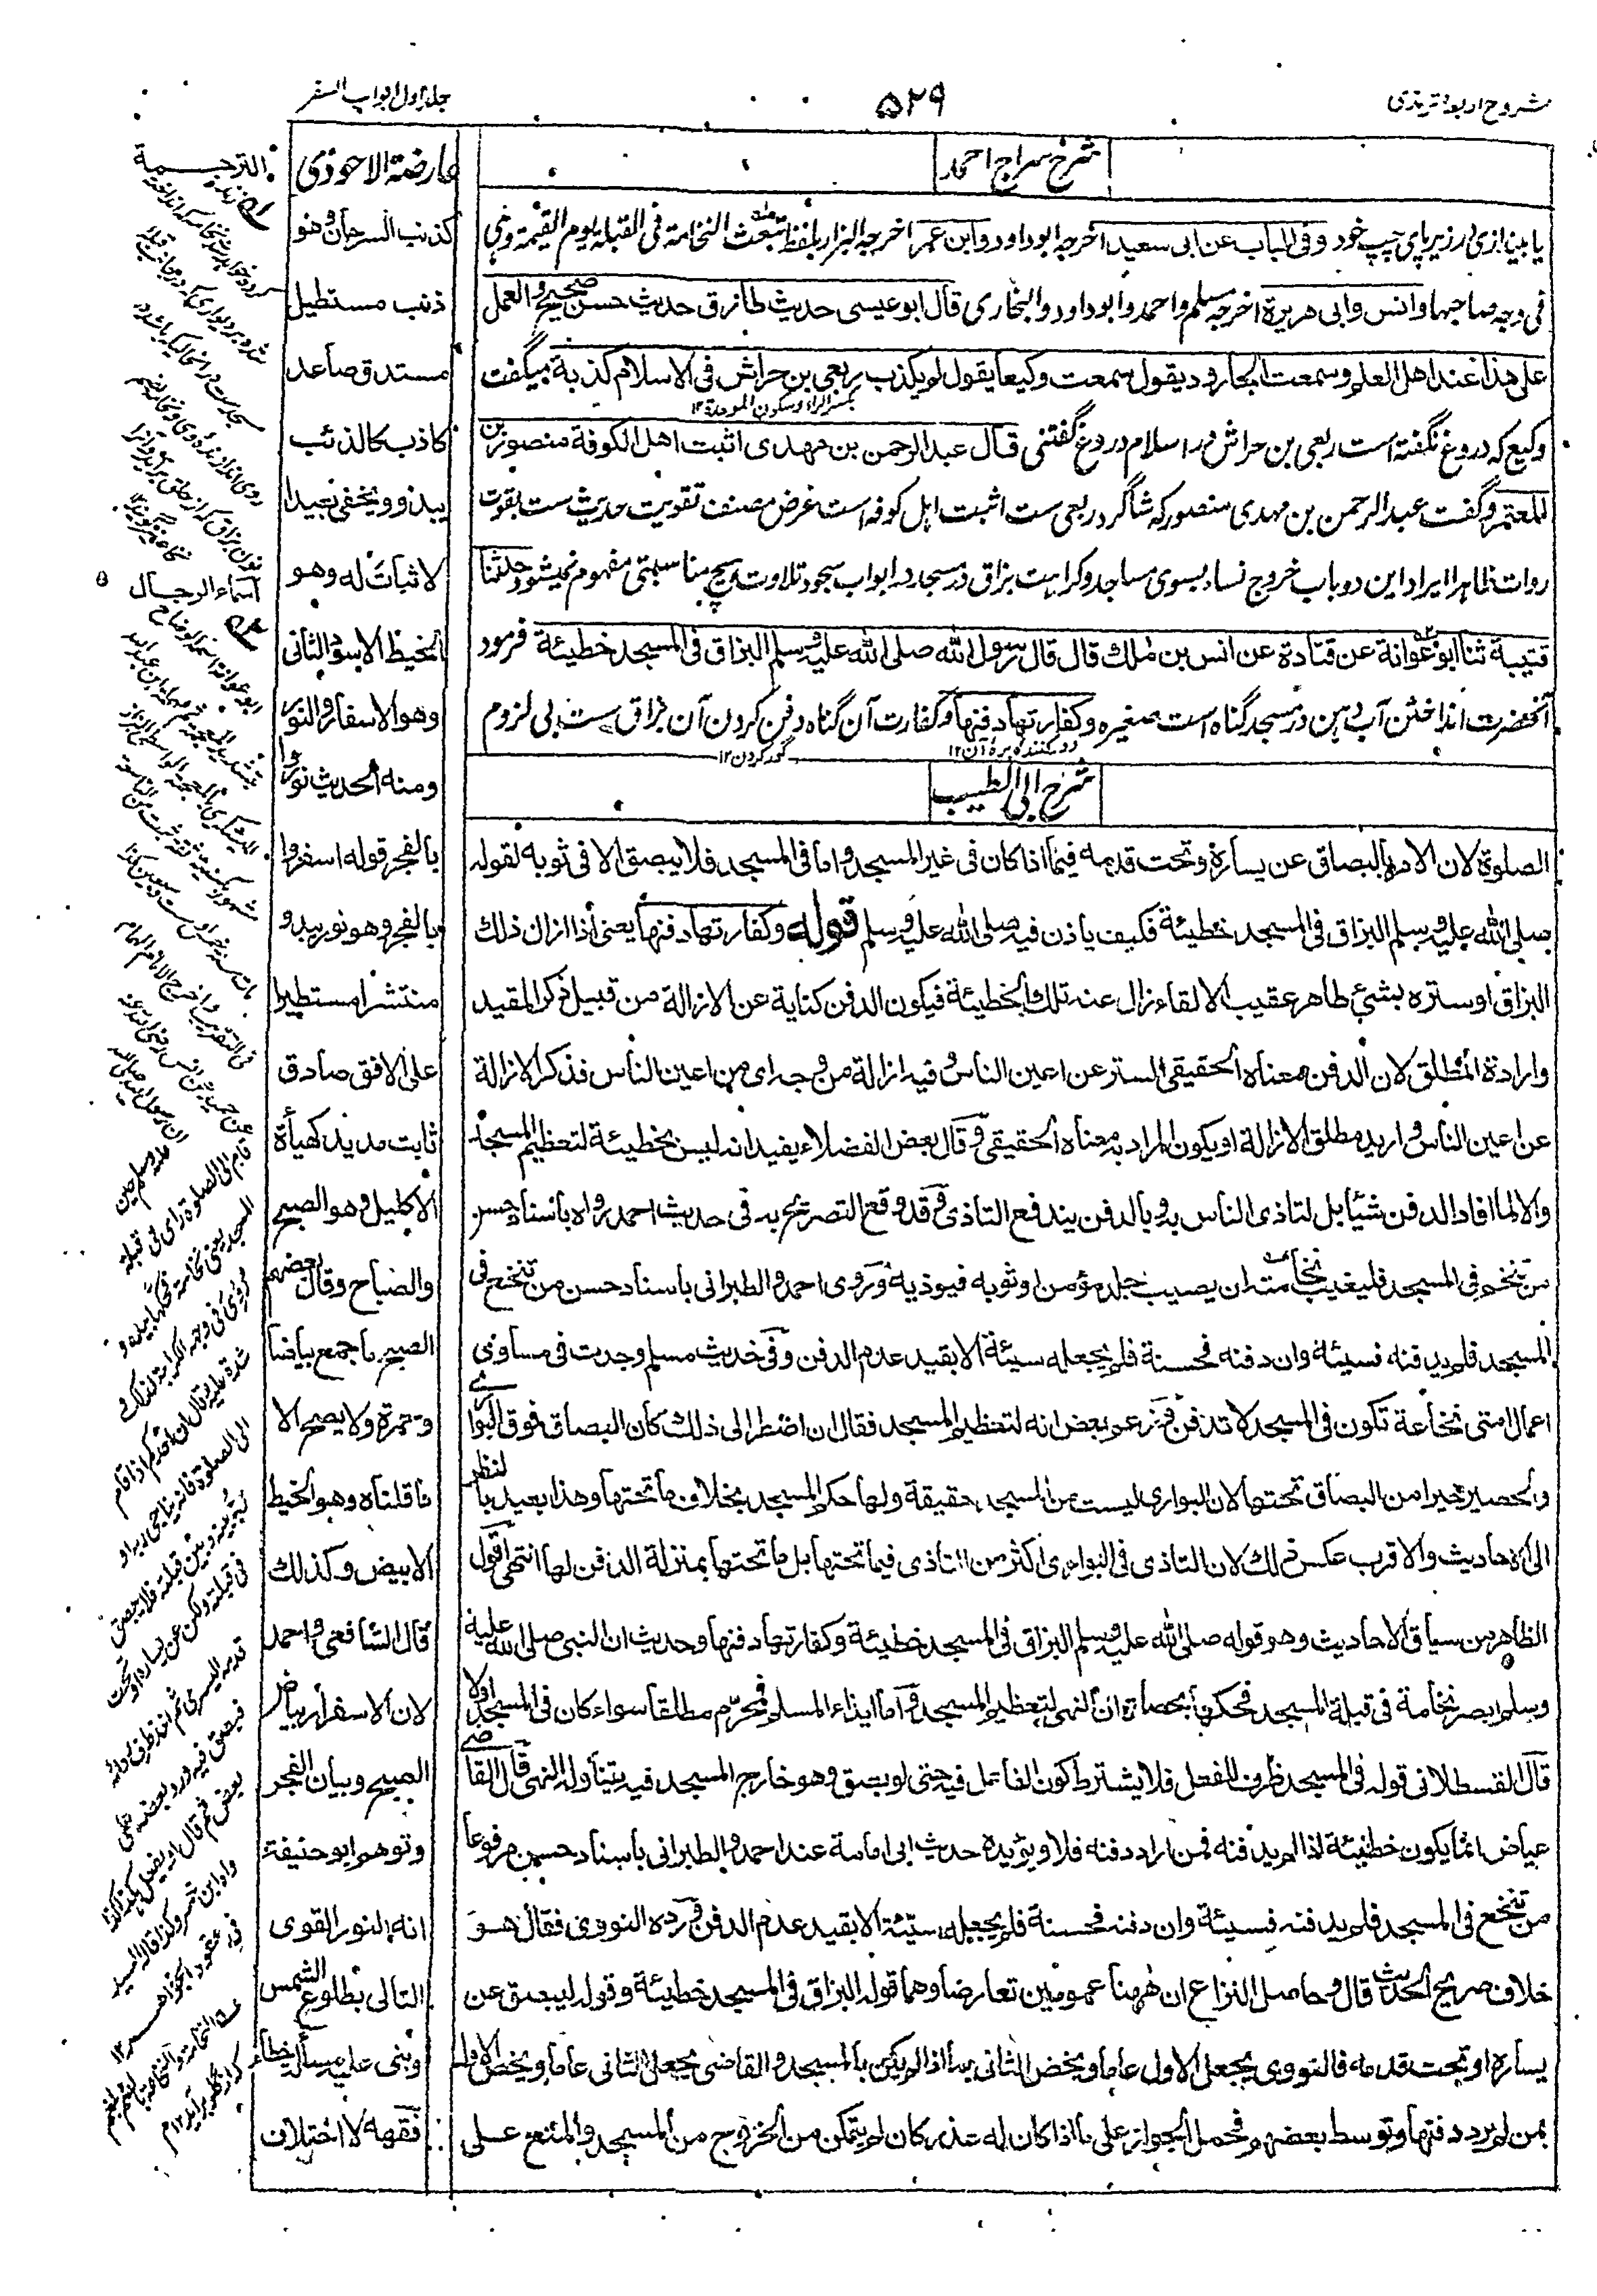 مشروح اربعۂ ترمذی
۵۲۹
جلد اول ابواب السفر
شرح سراج احمد
یا بیندازی در زیر پای چپ خود وفی الباب عن ابی سعید اخرجہ ابو داود وابن عمر اخرجہ البزار بلفظ تبعث النخامة فی القبلة یوم القیمة وہی
فی وجہ صاحبہا وانس وابی ہریرة اخرجہ مسلم واحمد وابو داود والبخاری قال ابو عیسی حدیث طارق حدیث حسن صحیح والعمل
علی ہذا عند اھل العلم وسمعت الجارود یقول سمعت وکیعا یقول لم یکذب ربعی بن حراش فی الاسلام کذبة میگفت
بکسر الراء وسکون الموحدة ۱۲
وکیع کہ دروغ نگفتہ است ربعی بن حراش در اسلام دروغ گفتنی قال عبد الرحمن بن مہدی اثبت اھل الکوفة منصور بن
المعتمر وگفت عبد الرحمن بن مہدی منصور کہ شاگرد ربعی ست اثبت اہل کوفہ است غرض مصنف تقویت حدیث ست بقوت
روات ظاہرا ایراد این دو باب خروج نساء بسوی مساجد وکراہت بزاق در مسجد در ابواب سجود تلاوت ہیچ مناسبتی مفہوم نمیشود حدثنا
قتیبة ثنا ابو عوانة عن قتادة عن انس بن ملك قال قال رسول الله صلی الله علیہ وسلم البزاق فی المسجد خطیئة فرمود
آنحضرت انداختن آب دہن در مسجد گناہ است صغیرہ وکفارتها دفنها وکفارت آن گناہ دفن کردن آن بزاق ست بی لزوم
دور کنندہ بزہ آن ۱۲
گور کردن ۱۲
شرح ابی الطیب
الصلوة لان الامر بالبصاق عن یسارہ وتحت قدمہ فیما اذا کان فی غیر المسجد واما فی المسجد فلا یبصق الا فی ثوبہ لقولہ
صلی الله علیہ وسلم البزاق فی المسجد خطیئة فکیف یاذن فیہ صلی الله علیہ وسلم قولہ وکفارتها دفنها یعنی اذا ازال ذلك
البزاق او سترہ بشئ طاهر عقیب الالقاء زال عنہ تلك الخطیئة فیکون الدفن کنایة عن الازالة من قبیل ذکر المقید
وارادة المطلق لان الدفن معناہ الحقیقی الستر عن اعین الناس وفیہ ازالة من وجہ ای من اعین الناس فذکر الازالة
عن اعین الناس وارید مطلق الازالة او یکون المراد بہ معناہ الحقیقی وقال بعض الفضلاء یفید انہ لیس بخطیئة لتعظیم المسجد
والا لما افاد الدفن شیئا بل لتاذی الناس بہ وبالدفن یندفع التاذی وقد وقع التصریح بہ فی حدیث احمد رواہ باسناد حسن
من تنخم فی المسجد فلیغیب نخامتہ ان یصیب جلد مؤمن او ثوبہ فیوذیہ وروی احمد والطبرانی باسناد حسن من تنخع فی
المسجد فلم یدفنہ فسیئة وان دفنہ فحسنة فلم یجعلہ سیئة الا بقید عدم الدفن وفی حدیث مسلم وجدت فی مساوی
اعمال امتی نخاعة تکون فی المسجد لا تدفن فزعم بعض انہ لتعظیم المسجد فقال ان اضطر الی ذلك کان البصاق فوق البواری
والحصیر خیرا من البصاق تحتها لان البواری لیست من المسجد حقیقة ولها حکم المسجد بخلاف ما تحتها وهذا بعید بالنظر
الی الاحادیث والاقرب عکس ذلك لان التاذی فی البواری اکثر من التاذی فیما تحتها بل ما تحتها بمنزلة الدفن لها انتهی اقول
الظاهر من سیاق الاحادیث وهو قولہ صلی الله علیہ وسلم البزاق فی المسجد خطیئة وکفارتها دفنها وحدیث ان النبی صلی الله علیہ
وسلم ابصر نخامة فی قبلة المسجد فحکها بحصاة ان النهی لتعظیم المسجد واما ایذاء المسلم فمحرم مطلقا سواء کان فی المسجد اولا
قال القسطلانی قولہ فی المسجد ظرف للفعل فلا یشترط کون الفاعل فیہ حتی لو بصق وهو خارج المسجد فیہ یتناولہ النهی قال القاضی
عیاض انما یکون خطیئة اذا لم یدفنہ فمن اراد دفنہ فلا ویؤیدہ حدیث ابی امامة عند احمد والطبرانی باسناد حسن مرفوعا
من تنخع فی المسجد فلم یدفنہ فسیئة وان دفنہ فحسنة فلم یجعلہ سیئة الا بقید عدم الدفن وردہ النووی فقال هو
خلاف صریح الحدیث قال وحاصل النزاع ان ههنا عمومین تعارضا وهما قولہ البزاق فی المسجد خطیئة وقولہ لیبصق عن
یسارہ او تحت قدمہ فالنووی یجعل الاول عاما ویخص الثانی بما اذا لم یکن بالمسجد والقاضی یجعل الثانی عاما ویخص الاول
بمن لم یرد دفنها وتوسط بعضهم فحمل الجواز علی ما اذا کان لہ عذر کان لم یتمکن من الخروج من المسجد والمنع علی
عارضة الاحوذی
کذنب السرحان وهو
ذنب مستطیل
مستدق صاعد
کاذب کالذئب
یبدو ویخفی بعیدا
لا ثبات لہ وهو
الخیط الاسود الثانی
وهو الاسفار والنور
ومنہ الحدیث نوروا
بالفجر قولہ اسفروا
بالفجر وهو نور یبدو
منتشرا مستطیرا
علی الافق صادق
ثابت مدید کهیأة
الاکلیل وهو الصبح
والصباح وقال بعضهم
الصبح ما جمع بیاضا
وحمرة ولا یصح الا
ما قلناہ وهو الخیط
الابیض وکذلك
قال الشافعی واحمد
لان الاسفار بیاض
الصبح وبیان الفجر
وتوهم ابو حنیفة
انہ النور القوی
التالی بطلوع الشمس
وبنی علیہ مسألة خطاء
فقهه لا اختلاف
الترجمة
اسماء الرجال
علیہ وسلم حین
قام الی الصلوة رای فی قبلة
المسجد یعنی نخامة فحکها بیدہ و
رؤی فی وجهہ الکراهة لذلك و
شدة علیہ وقال ان احدکم اذا قام
الی الصلوة فانہ یناجی ربہ او
ربہ بینہ وبین قبلتہ فلا یبصق
فی قبلتہ ولکن عن یسارہ او تحت
قدمہ الیسری ثم اخذ طرف ردائہ
فبصق فیہ ورد بعضہ علی
بعض ثم قال او یفعل هکذا